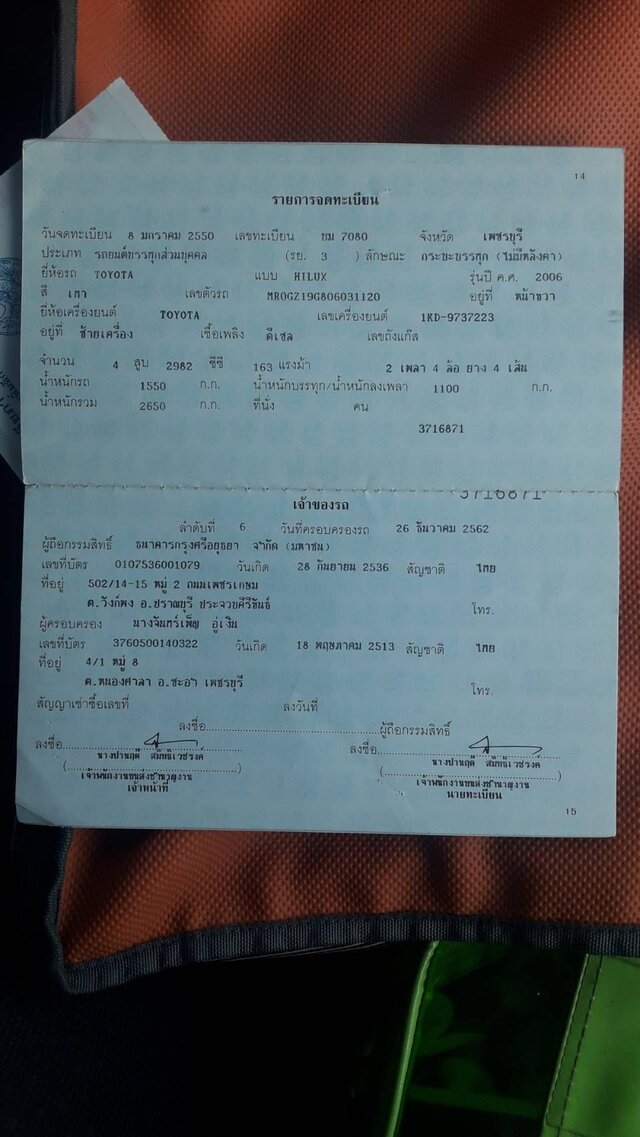 14
รายการจดทะเบียน
วันจดทะเบียน 8 มกราคม 2550 เลขทะเบียน บม 7080 จังหวัด เพชรบุรี
ประเภท รถยนต์บรรทุกส่วนบุคคล (รย. 3 ) ลักษณะ กระบะบรรทุก (ไม่มีหลังคา)
ยี่ห้อรถ TOYOTA แบบ HILUX รุ่นปี ค.ศ. 2006
สี เทา เลขตัวรถ MR0GZ19G806031120 อยู่ที่ หน้าขวา
ยี่ห้อเครื่องยนต์ TOYOTA เลขเครื่องยนต์ 1KD-9737223
อยู่ที่ ซ้ายเครื่อง เชื้อเพลิง ดีเซล เลขถังแก๊ส
จำนวน 4 สูบ 2982 ซีซี 163 แรงม้า 2 เพลา 4 ล้อ ยาง 4 เส้น
น้ำหนักรถ 1550 ก.ก. น้ำหนักบรรทุก/น้ำหนักลงเพลา 1100 ก.ก.
น้ำหนักรวม 2650 ก.ก. ที่นั่ง คน
3716871
3716871
เจ้าของรถ
ลำดับที่ 6 วันที่ครอบครองรถ 26 ธันวาคม 2562
ผู้ถือกรรมสิทธิ์ ธนาคารกรุงศรีอยุธยา จำกัด (มหาชน)
เลขที่บัตร 0107536001079 วันเกิด 28 กันยายน 2536 สัญชาติ ไทย
ที่อยู่ 502/14-15 หมู่ 2 ถนนเพชรเกษม
ต.วังก์พง อ.ปราณบุรี ประจวบคีรีขันธ์ โทร.
ผู้ครอบครอง นางจันทร์เพ็ญ อู่เงิน
เลขที่บัตร 3760500140322 วันเกิด 18 พฤษภาคม 2513 สัญชาติ ไทย
ที่อยู่ 4/1 หมู่ 8
ต.หนองศาลา อ.ชะอำ เพชรบุรี โทร.
สัญญาเช่าซื้อเลขที่ ลงวันที่
ลงชื่อ ผู้ถือกรรมสิทธิ์
ลงชื่อ ลงชื่อ
นางปานฤดี นางปานฤดี
เจ้าพนักงานขนส่งชำนาญงาน เจ้าพนักงานขนส่งชำนาญงาน
เจ้าหน้าที่ นายทะเบียน
15